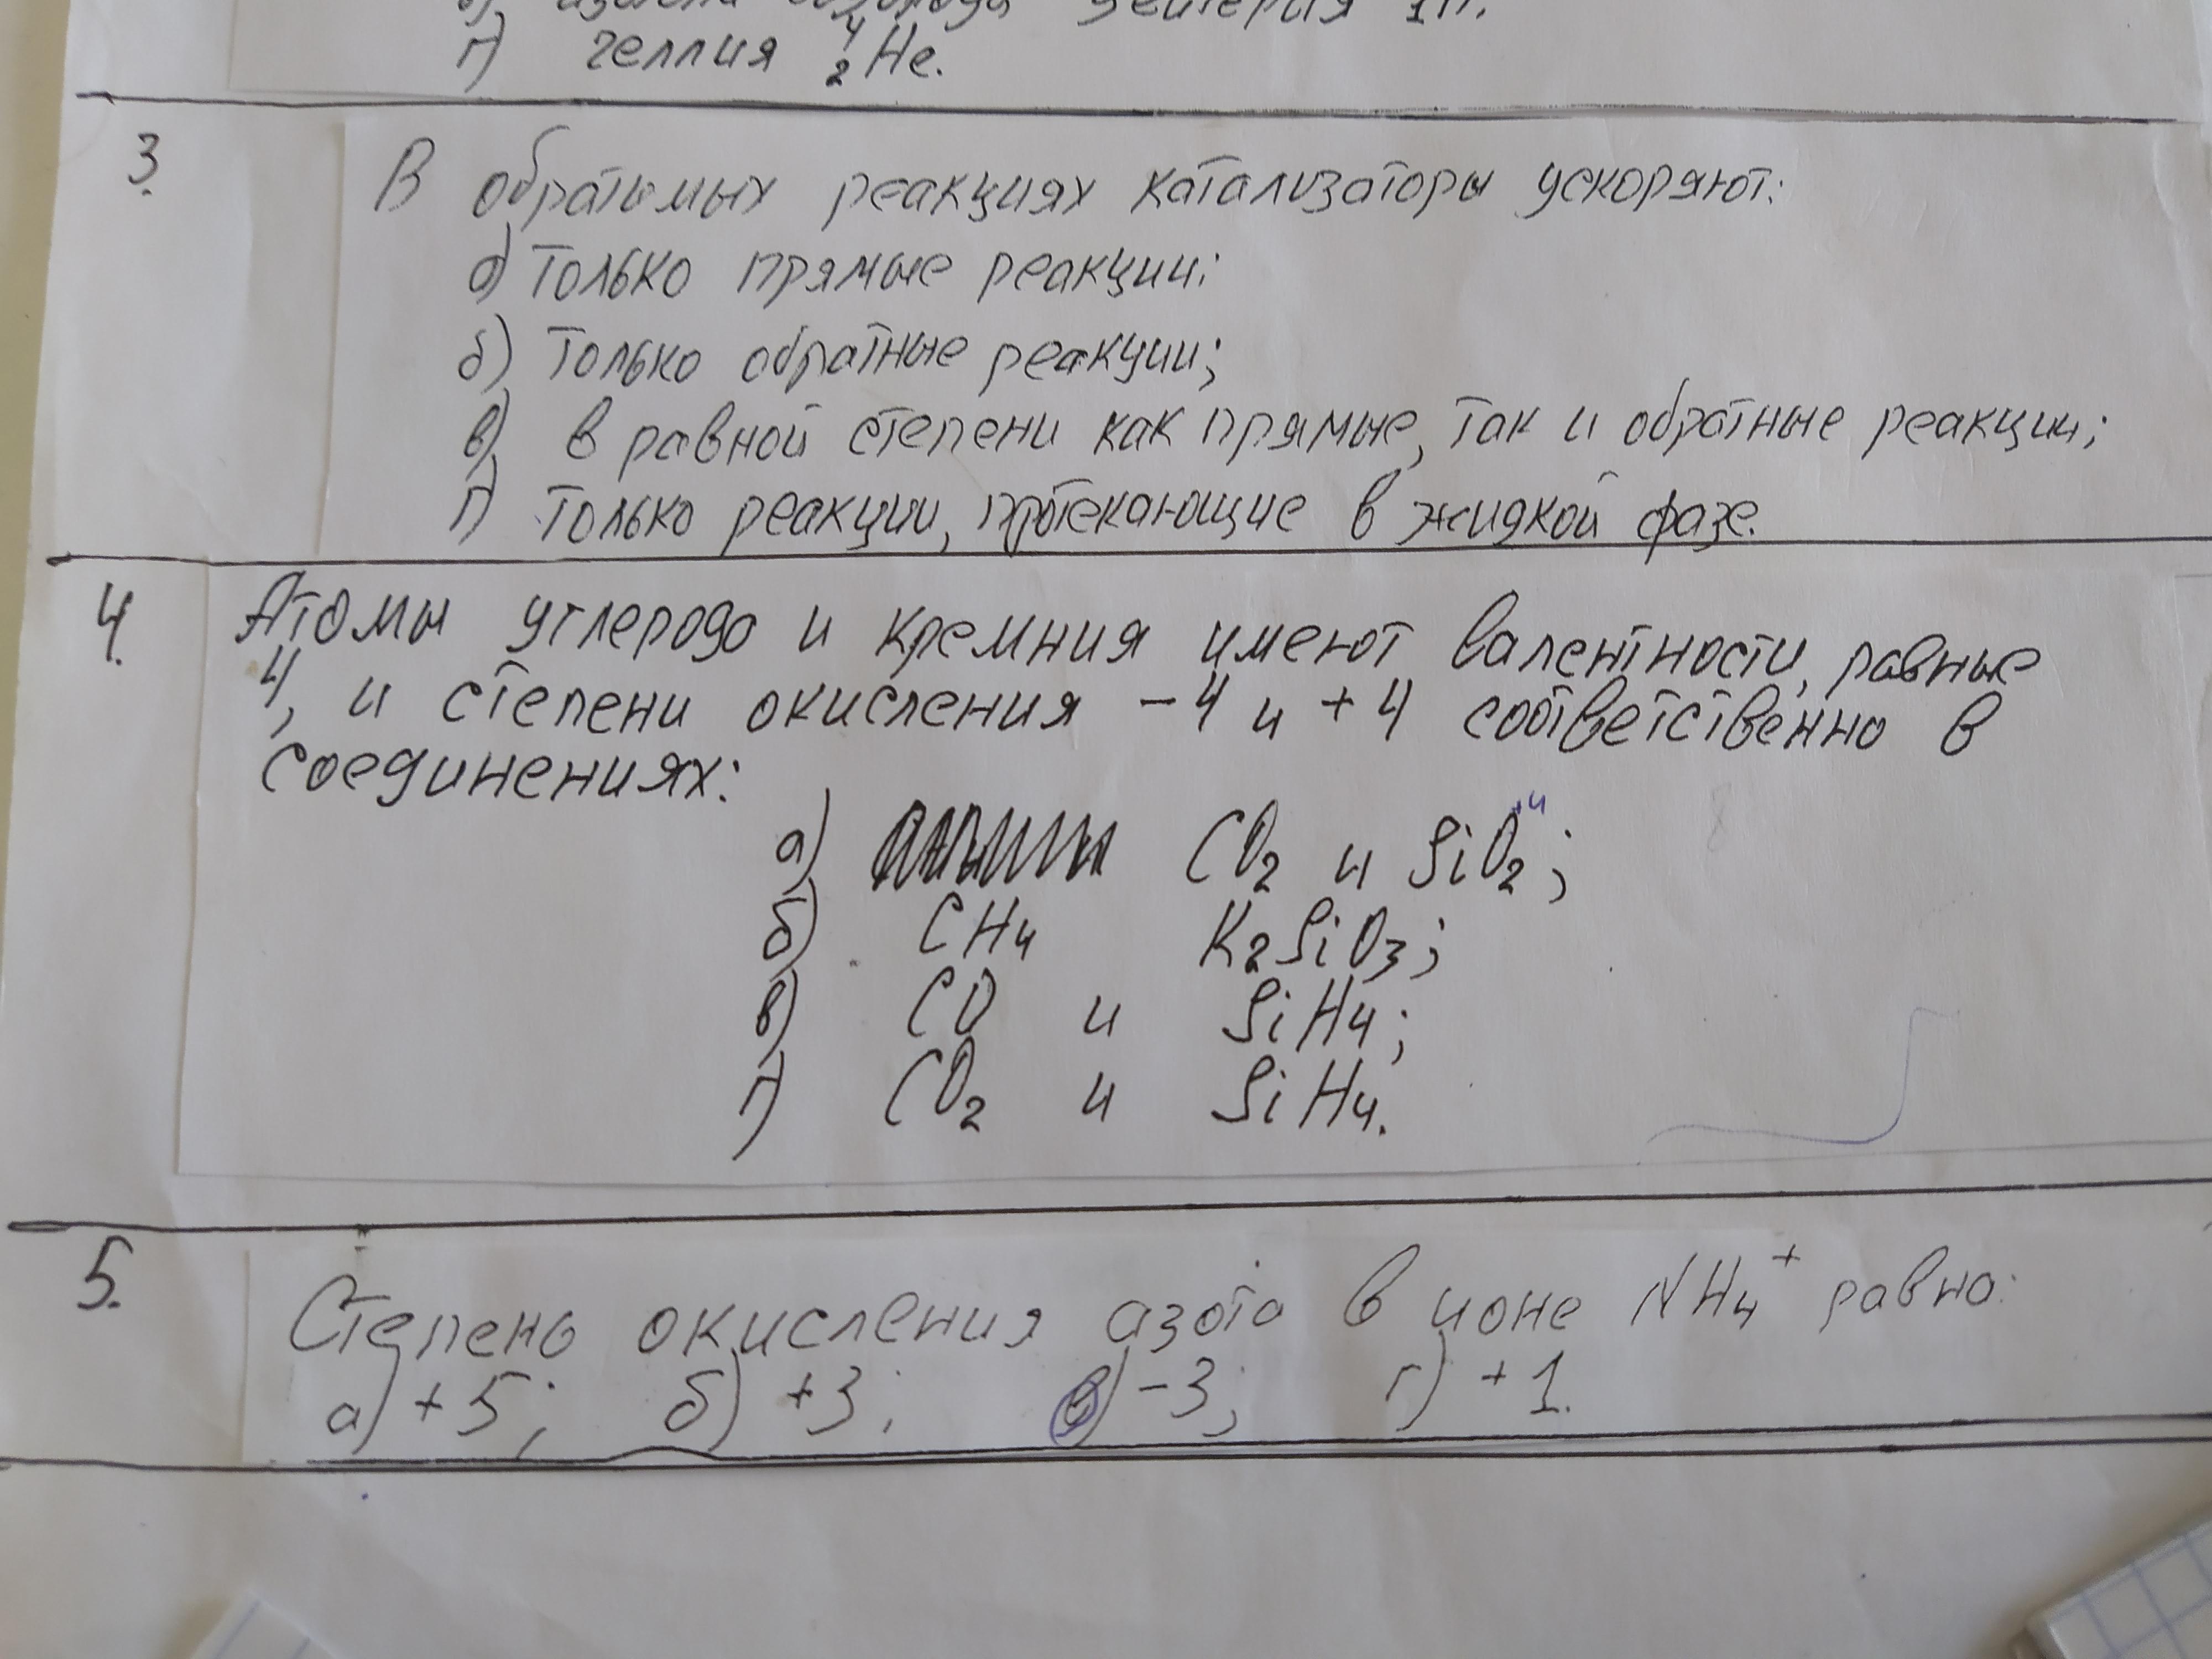 г) гелия ⁴₂He.
3. В обратимых реакциях катализаторы ускоряют:
а) только прямые реакции;
б) только обратные реакции;
в) в равной степени как прямые, так и обратные реакции;
г) только реакции, протекающие в жидкой фазе.
4. Атомы углерода и кремния имеют валентности, равные
4, и степени окисления -4 и +4 соответственно в
соединениях:
а) CO₂ и SiO₂;
б) CH₄ K₂SiO₃;
в) CO и SiH₄;
г) CO₂ и SiH₄.
5. Степень окисления азота в ионе NH₄⁺ равна:
а) +5; б) +3; в) -3; г) +1.